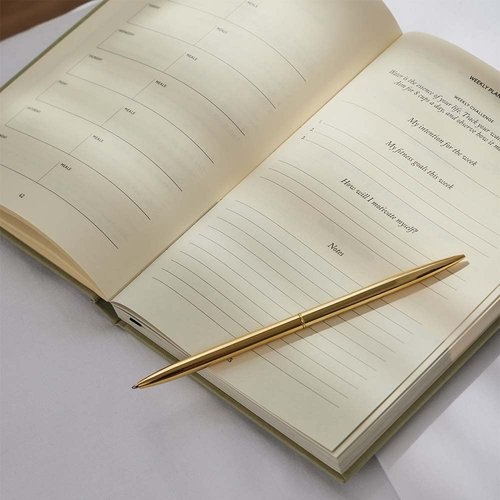 MEALS
MEALS
MEALS
MEALS
MEALS
MEALS
MEALS
WEEKLY PLAN
WEEKLY CHALLENGE
Water is the essence of your life. Track your
Aim for 8 cups a day, and observe how it
My intention for the week
My fitness goals this week
1
2
3
How will I motivate myself?
Notes